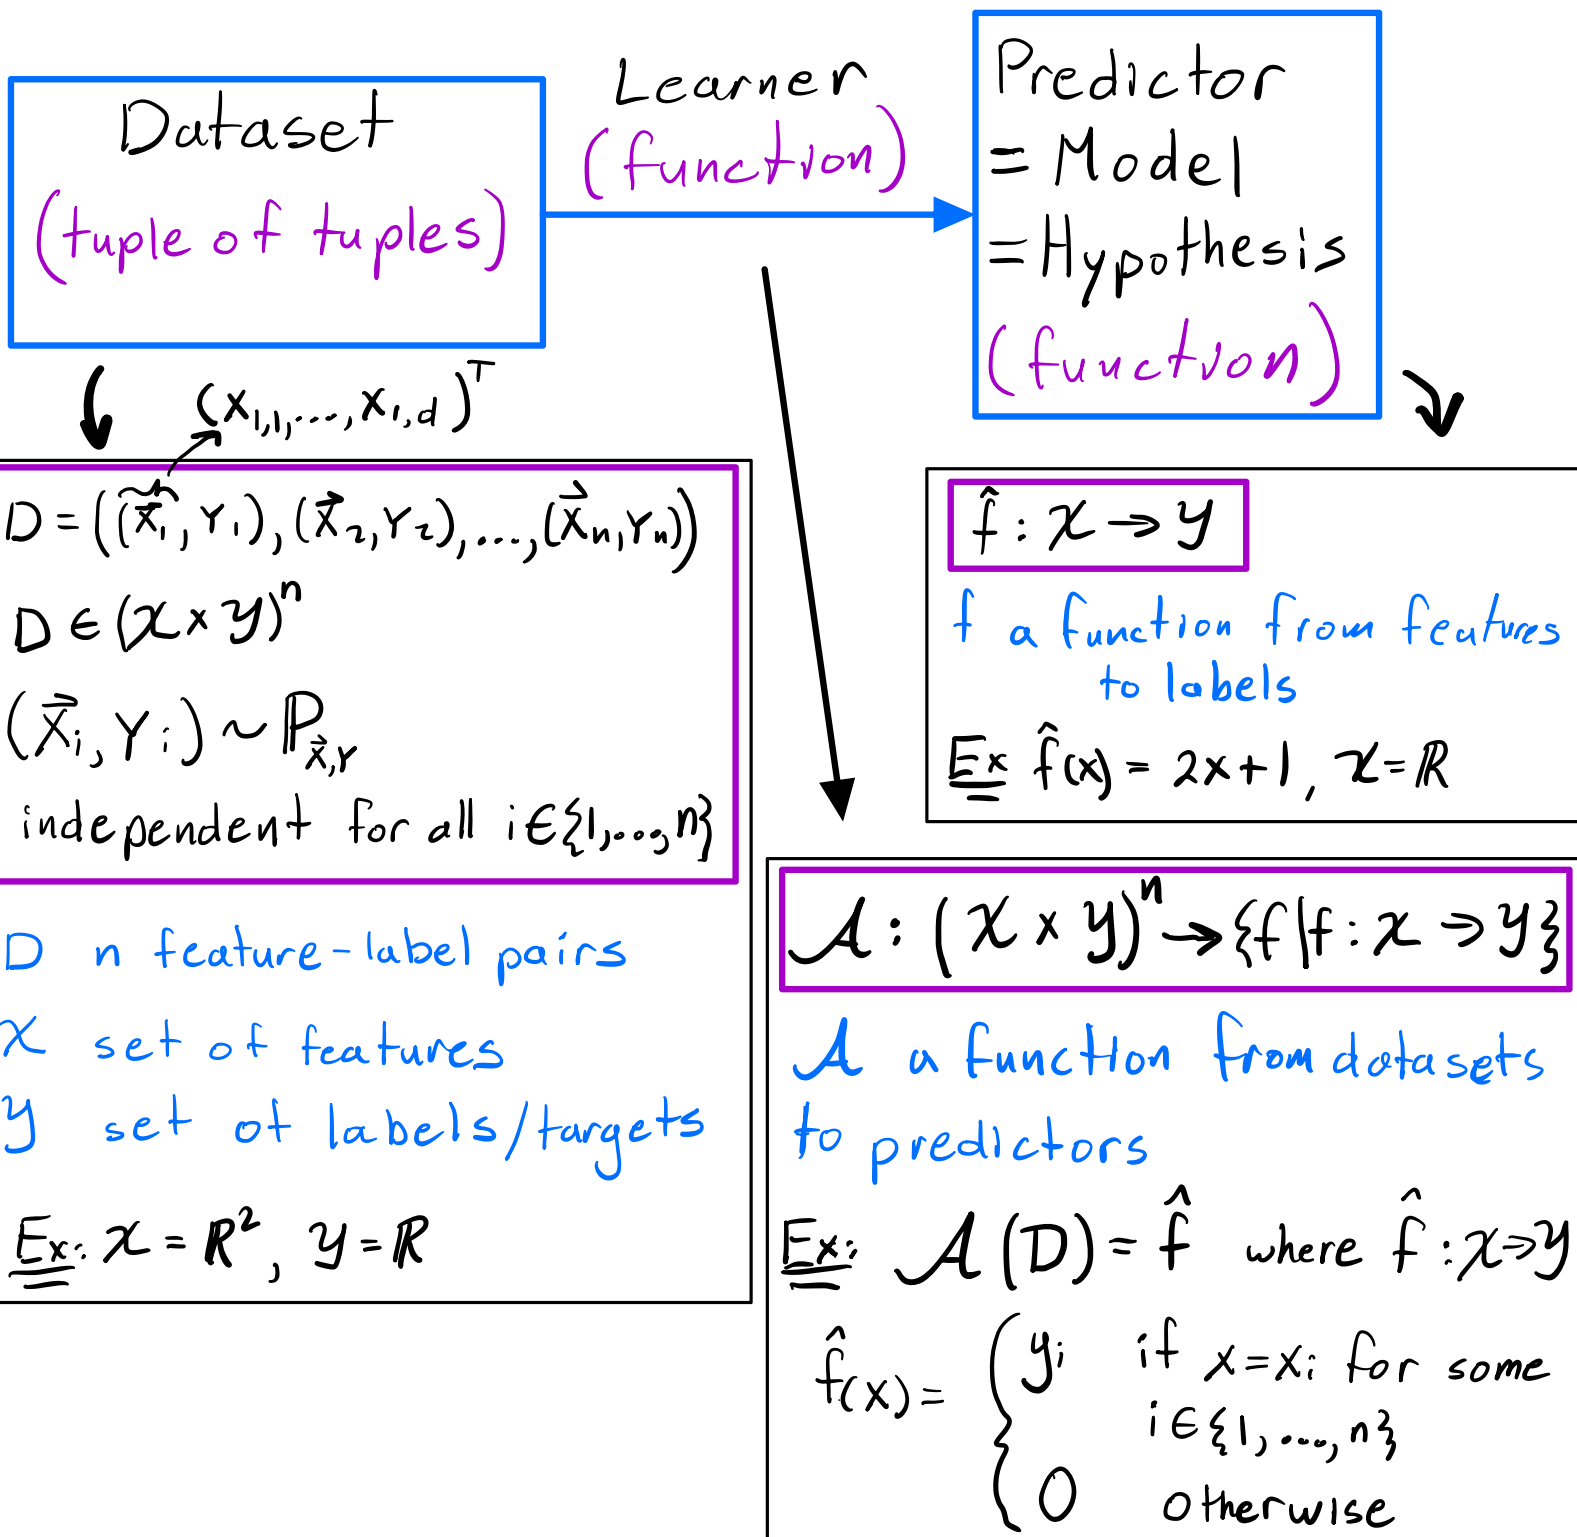 Dataset
(tuple of tuples)
Learner
(function)
Predictor
= Model
= Hypothesis
(function)
(X₁,₁,...,X₁,d)ᵀ
D = ((X⃗₁, Y₁), (X⃗₂, Y₂), ..., (X⃗ₙ, Yₙ))
D ∈ (𝒳 × 𝒴)ⁿ
(X⃗ᵢ, Yᵢ) ~ ℙ_X⃗,Y
independent for all i ∈ {1,...,n}
D n feature-label pairs
𝒳 set of features
𝒴 set of labels/targets
Ex: 𝒳 = ℝ², 𝒴 = ℝ
f̂ : 𝒳 → 𝒴
f a function from features
to labels
Ex f̂(x) = 2x+1, 𝒳 = ℝ
𝒜 : (𝒳 × 𝒴)ⁿ → {f | f : 𝒳 → 𝒴}
𝒜 a function from datasets
to predictors
Ex: 𝒜(D) = f̂ where f̂ : 𝒳 → 𝒴
f̂(x) = { yᵢ if x = xᵢ for some
i ∈ {1, ..., n}
0 otherwise